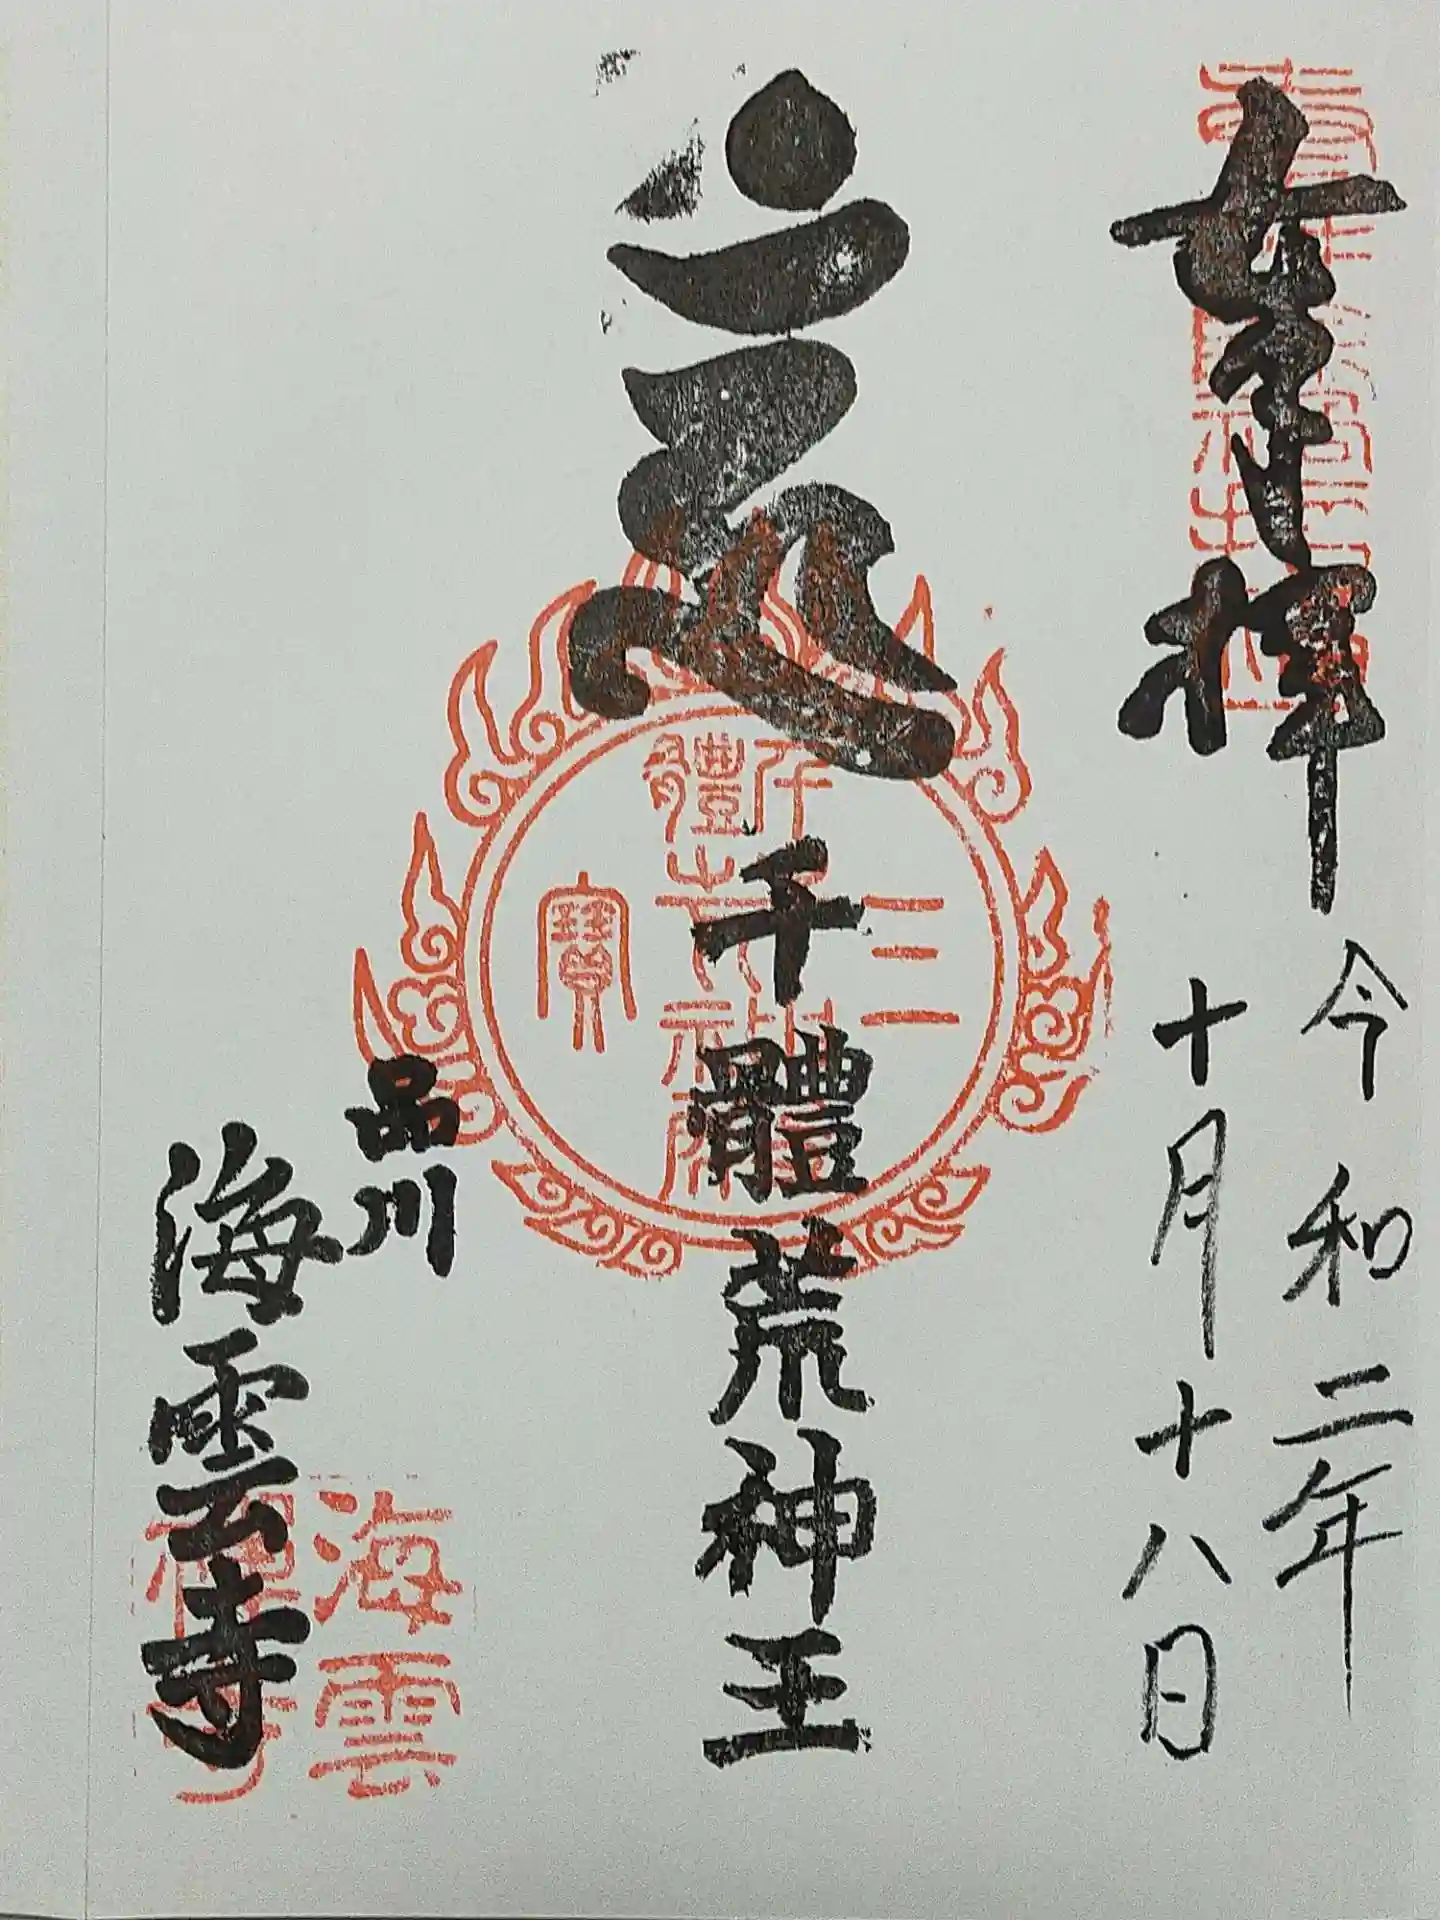 奉拝
令和二年
十月十八日
千體荒神王
三
寳
品川
海雲寺
海雲